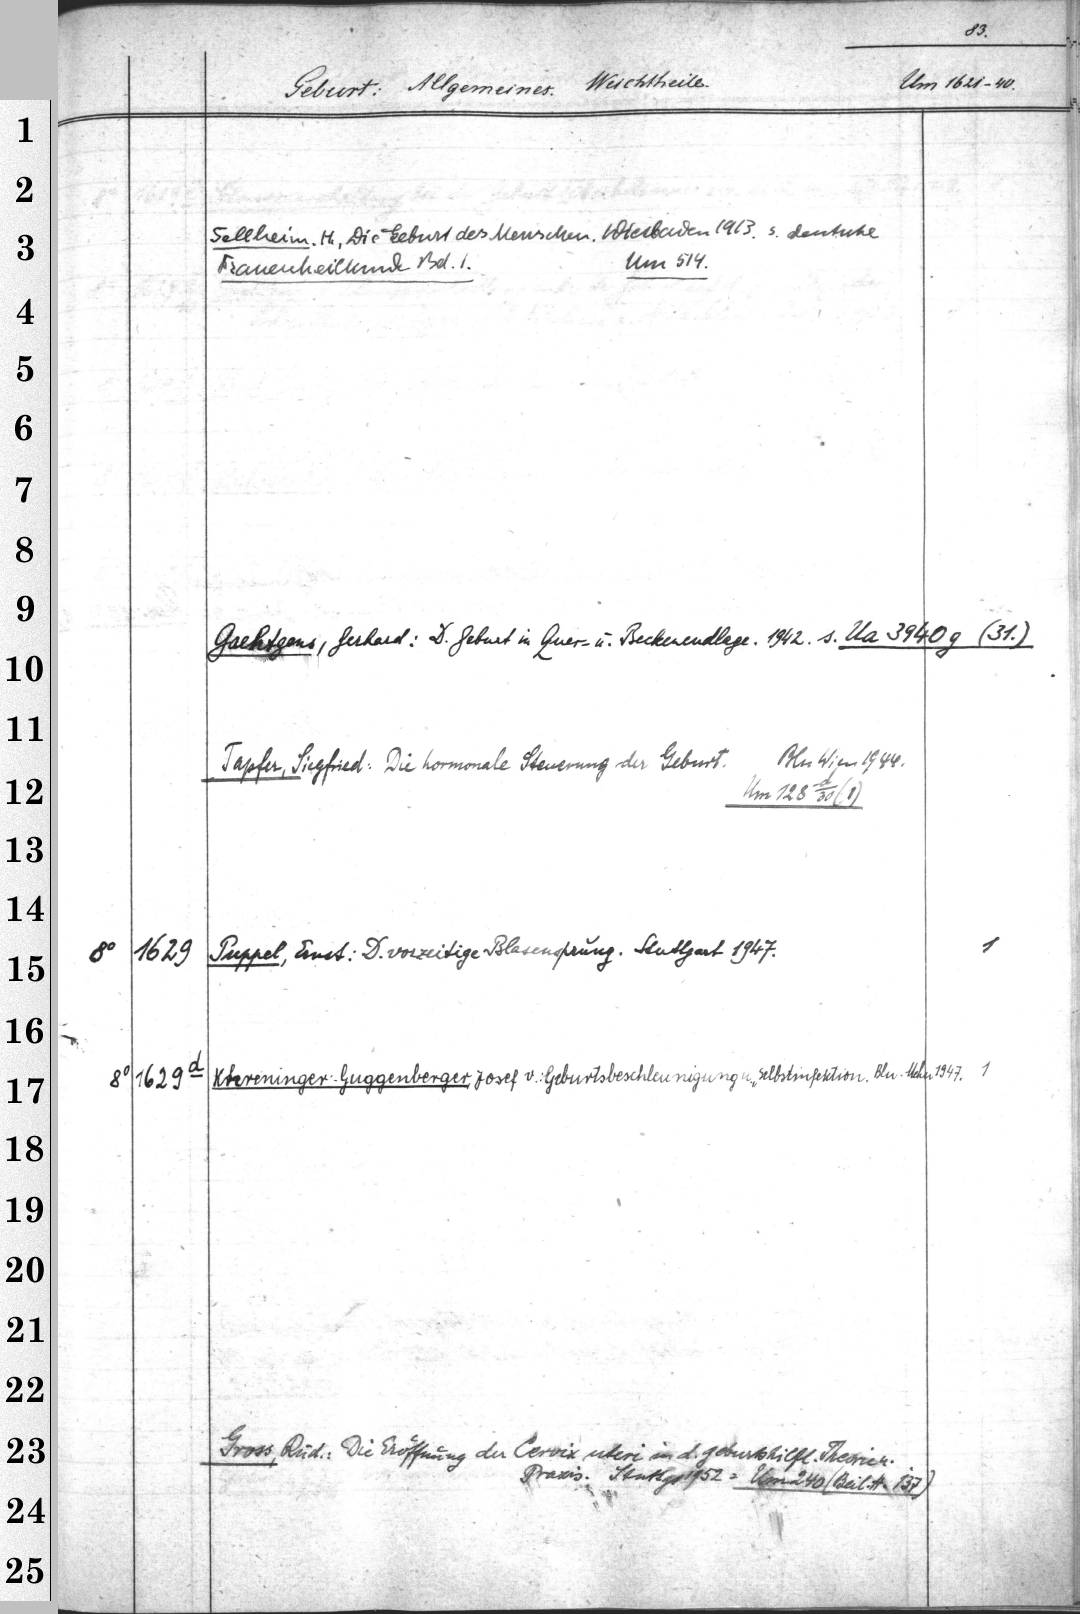 83.
Geburt: Allgemeines. Weichtheile. Um 1621-40.
1
2
Sellheim. H., Die Geburt des Menschen. Wiesbaden 1913. s. deutsche
3
Frauenheilkunde Bd. 1. Um 514.
4
5
6
7
8
9
Gaehtgens, Gerhard: D. Geburt in Quer- u. Beckenendlage. 1942. s. Ua 3940g (31.)
10
11
Tapfer, Siegfried: Die hormonale Steuerung der Geburt. Bln Wien 1944.
12
Um 128 d/30 (1)
13
14
8° 1629 Puppel, Ernst: D. vorzeitige Blasensprung. Stuttgart 1947. 1
15
16
8° 1629d Khreninger-Guggenberger, Josef v.: Geburtsbeschleunigung u. Selbstinfektion. Bln-Mchn 1947. 1
17
18
19
20
21
22
23
Gross, Rud.: Die Eröffnung der Cervix uteri in d. geburtshilfl. Theorie u.
Praxis. Stuttg. 1952 = Um 240 (Beil.H. 137)
24
25